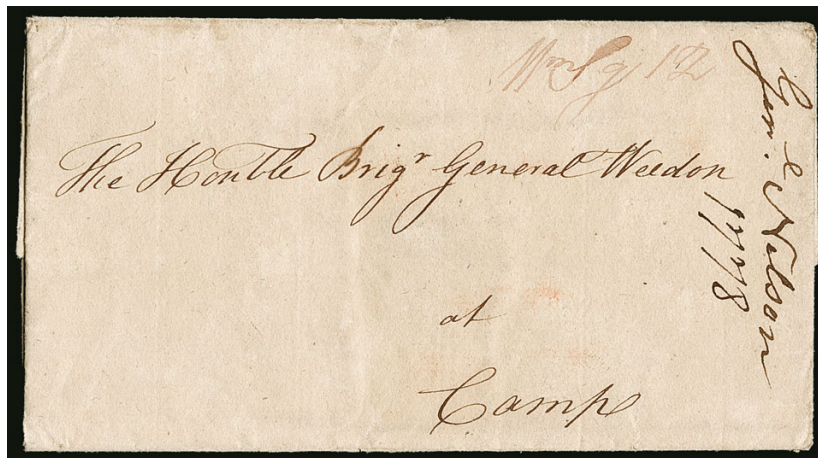 WmSg 12
The Honble Brigr General Weedon
at
Camp
Genl Nelson
1778